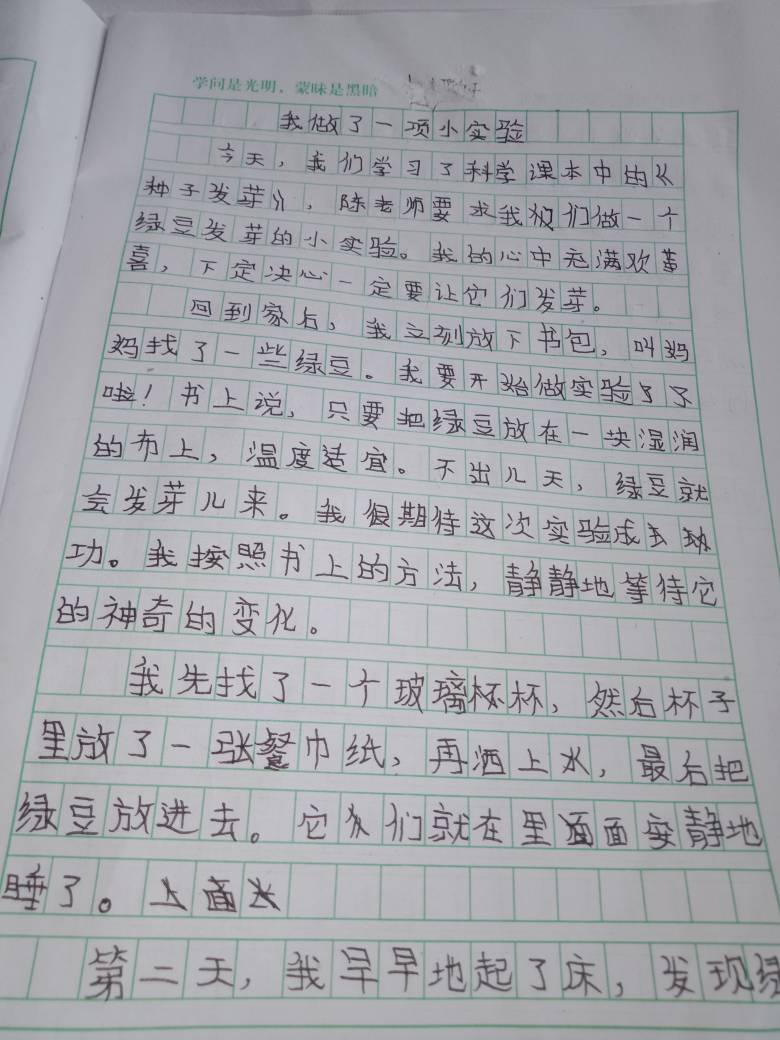 学问是光明，蒙昧是黑暗
我做了一项小实验
今天，我们学习了科学课本中的《
种子发芽》，陈老师要求我们做一个
绿豆发芽的小实验。我的心中充满欢喜
喜，下定决心一定要让它们发芽。
回到家后，我立刻放下书包，叫妈
妈找了一些绿豆。我要开始做实验了
啦！书上说，只要把绿豆放在一块湿润
的布上，温度适宜。不出几天，绿豆就
会发芽儿来。我很期待这次实验成
功。我按照书上的方法，静静地等待它
的神奇的变化。
我先找了一个玻璃杯杯，然后杯子
里放了一张餐巾纸，再洒上水，最后把
绿豆放进去。它们就在里面面安静地
睡了。上面
第二天，我早早地起了床，发现绿